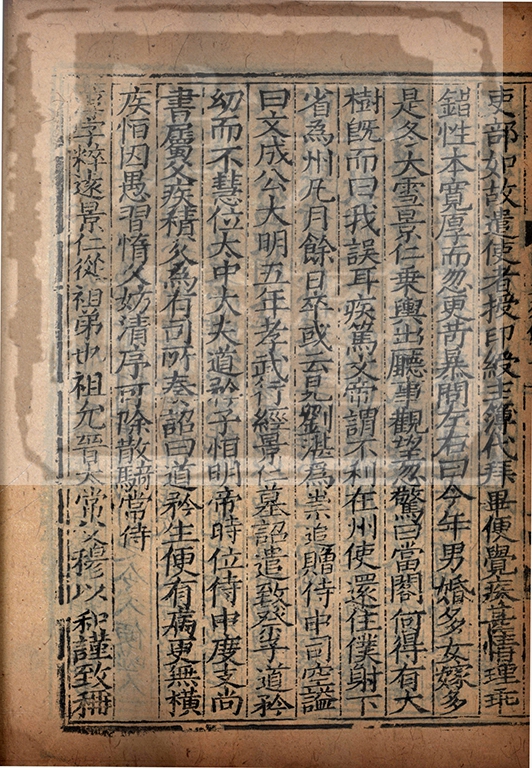 吏部如故遣使者授印綬主簿代拜畢便覺疾甚情理乖
錯性本寬厚而忽更苛暴問左右曰今年男婚多女嫁多
是冬大雪景仁乘輿出廳事觀望忽驚曰當閤何得有大
樹既而曰我誤耳疾篤文帝謂不利在州使還住僕射下
省為州凡月餘日卒或云見劉湛為祟追贈侍中司空謚
曰文成公大明五年孝武行經景仁墓詔遣致祭子道矜
幼而不慧位太中大夫道矜子恒明帝時位侍中度支尚
書屬父疾積久為有司所奏詔曰道矜生便有病更無橫
疾恒因愚習惰久妨清序可除散騎常侍
淳字粹遠景仁從祖弟也祖允晉太常父穆以和謹致稱